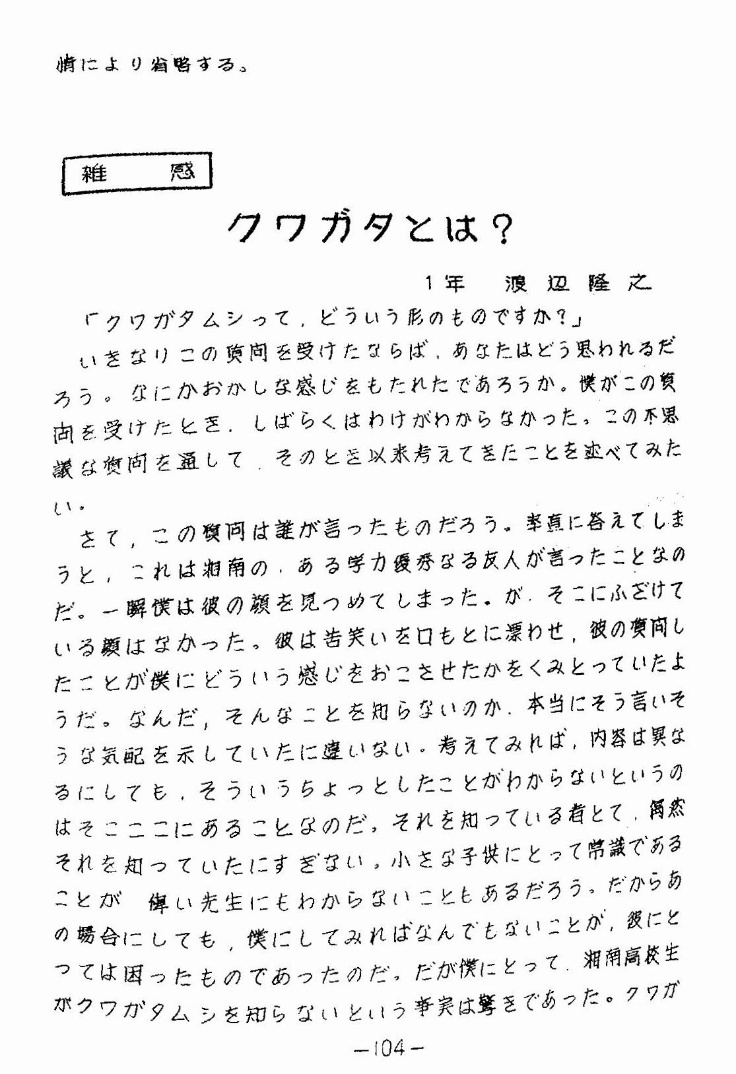 情により省略する。
雑　感
クワガタとは？
1年　渡辺隆之
「クワガタムシって，どういう形のものですか？」
いきなりこの質問を受けたならば，あなたはどう思われるだ
ろう。なにかおかしな感じをもたれたであろうか。僕がこの質
問を受けたとき，しばらくはわけがわからなかった。この不思
議な質問を通して，そのとき以来考えてきたことを述べてみた
い。
さて，この質問は誰が言ったものだろう。率直に答えてしま
うと，これは湘南の，ある学力優秀なる友人が言ったことなの
だ。一瞬僕は彼の顔を見つめてしまった。が，そこにふざけて
いる顔はなかった。彼は苦笑いを口もとに漂わせ，彼の質問し
たことが僕にどういう感じをおこさせたかをくみとっていたよ
うだ。なんだ，そんなことを知らないのか，本当にそう言いそ
うな気配を示していたに違いない。考えてみれば，内容は異な
るにしても，そういうちょっとしたことがわからないというの
はそこここにあることなのだ。それを知っている者とて，偶然
それを知っていたにすぎない。小さな子供にとって常識である
ことが　偉い先生にもわからないこともあるだろう。だからあ
の場合にしても，僕にしてみればなんでもないことが，彼にと
っては困ったものであったのだ。だが僕にとって，湘南高校生
がクワガタムシを知らないという事実は驚きであった。クワガ
—104—